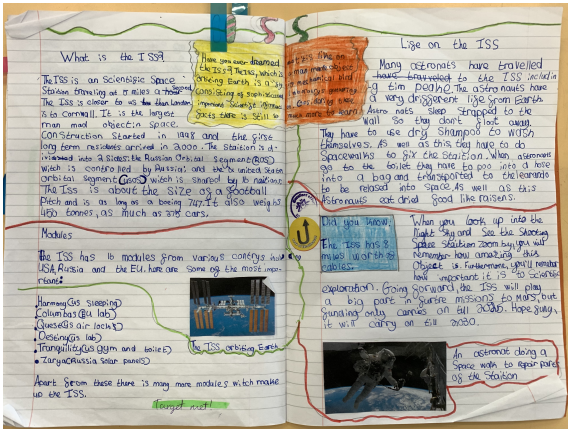 What is the ISS?
The ISS is an Scientific Space
Station traveling at 17 miles a second
The ISS is closer to us than London
is to Cornwall. It is the largest
man mad object in space.
Construction started in 1998 and the first
long term residents arrived in 2000. The Station is d-
into 2 sides: the Russian Orbital Segment (ROS)
witch is controlled by Russia; and the united State
orbital segment (USOS) witch is shared by many nations.
The ISS is about the size of a football
Pitch and is as long as a boeing 747. It also weighs
450 tonnes, as much as 375 cars.
Modules
The ISS has 16 modules from various contrys
USA, Russia and the EU. here are some of the most impor-
rtant:
Harmony(US sleeping)
Columbas(EU lab)
Quest(US air lock)
Destiny(US lab)
Tranquility(US gym and toilet)
Zarya(Russia solar panels)
Apart from these there is many more modules witch make
up the ISS.
Target met!
The ISS orbiting Earth
Have you ever dreamed
the ISS? The ISS, which is
Earth is a big
consisting of
important
facts there is still to
Life on the ISS
Many astronats have travelled
have traveled to the ISS includin
g tim peake. The astronats have
a very diggerent lige from Earth
Astronats sleep strapped to the
wall so they don't float away.
They have to use dry Shampoo to wash
themselves. As well as this they have to do
Spacewalks to fix the Station. When astronats
go to the toilet they have to poo into a hose
into a bag and transported to the
to be relased into space. As well as this
Astronauts eat dried food like raisens.
Did you know:
The ISS has 8
miles worth of
cables.
When you look up into the
night sky and see the Shooting
Space Staition zoom by, you will
remember how amazing this
Object is. Furthermore, you'll
how important it is to Scientific
exploration. Going forward, the ISS will play
a big part in future missions to Mars, but
funding only carries on till 2030. Hope
it will carry on till 2030.
An astronat doing a
Space walk to repair parts
of the Staition